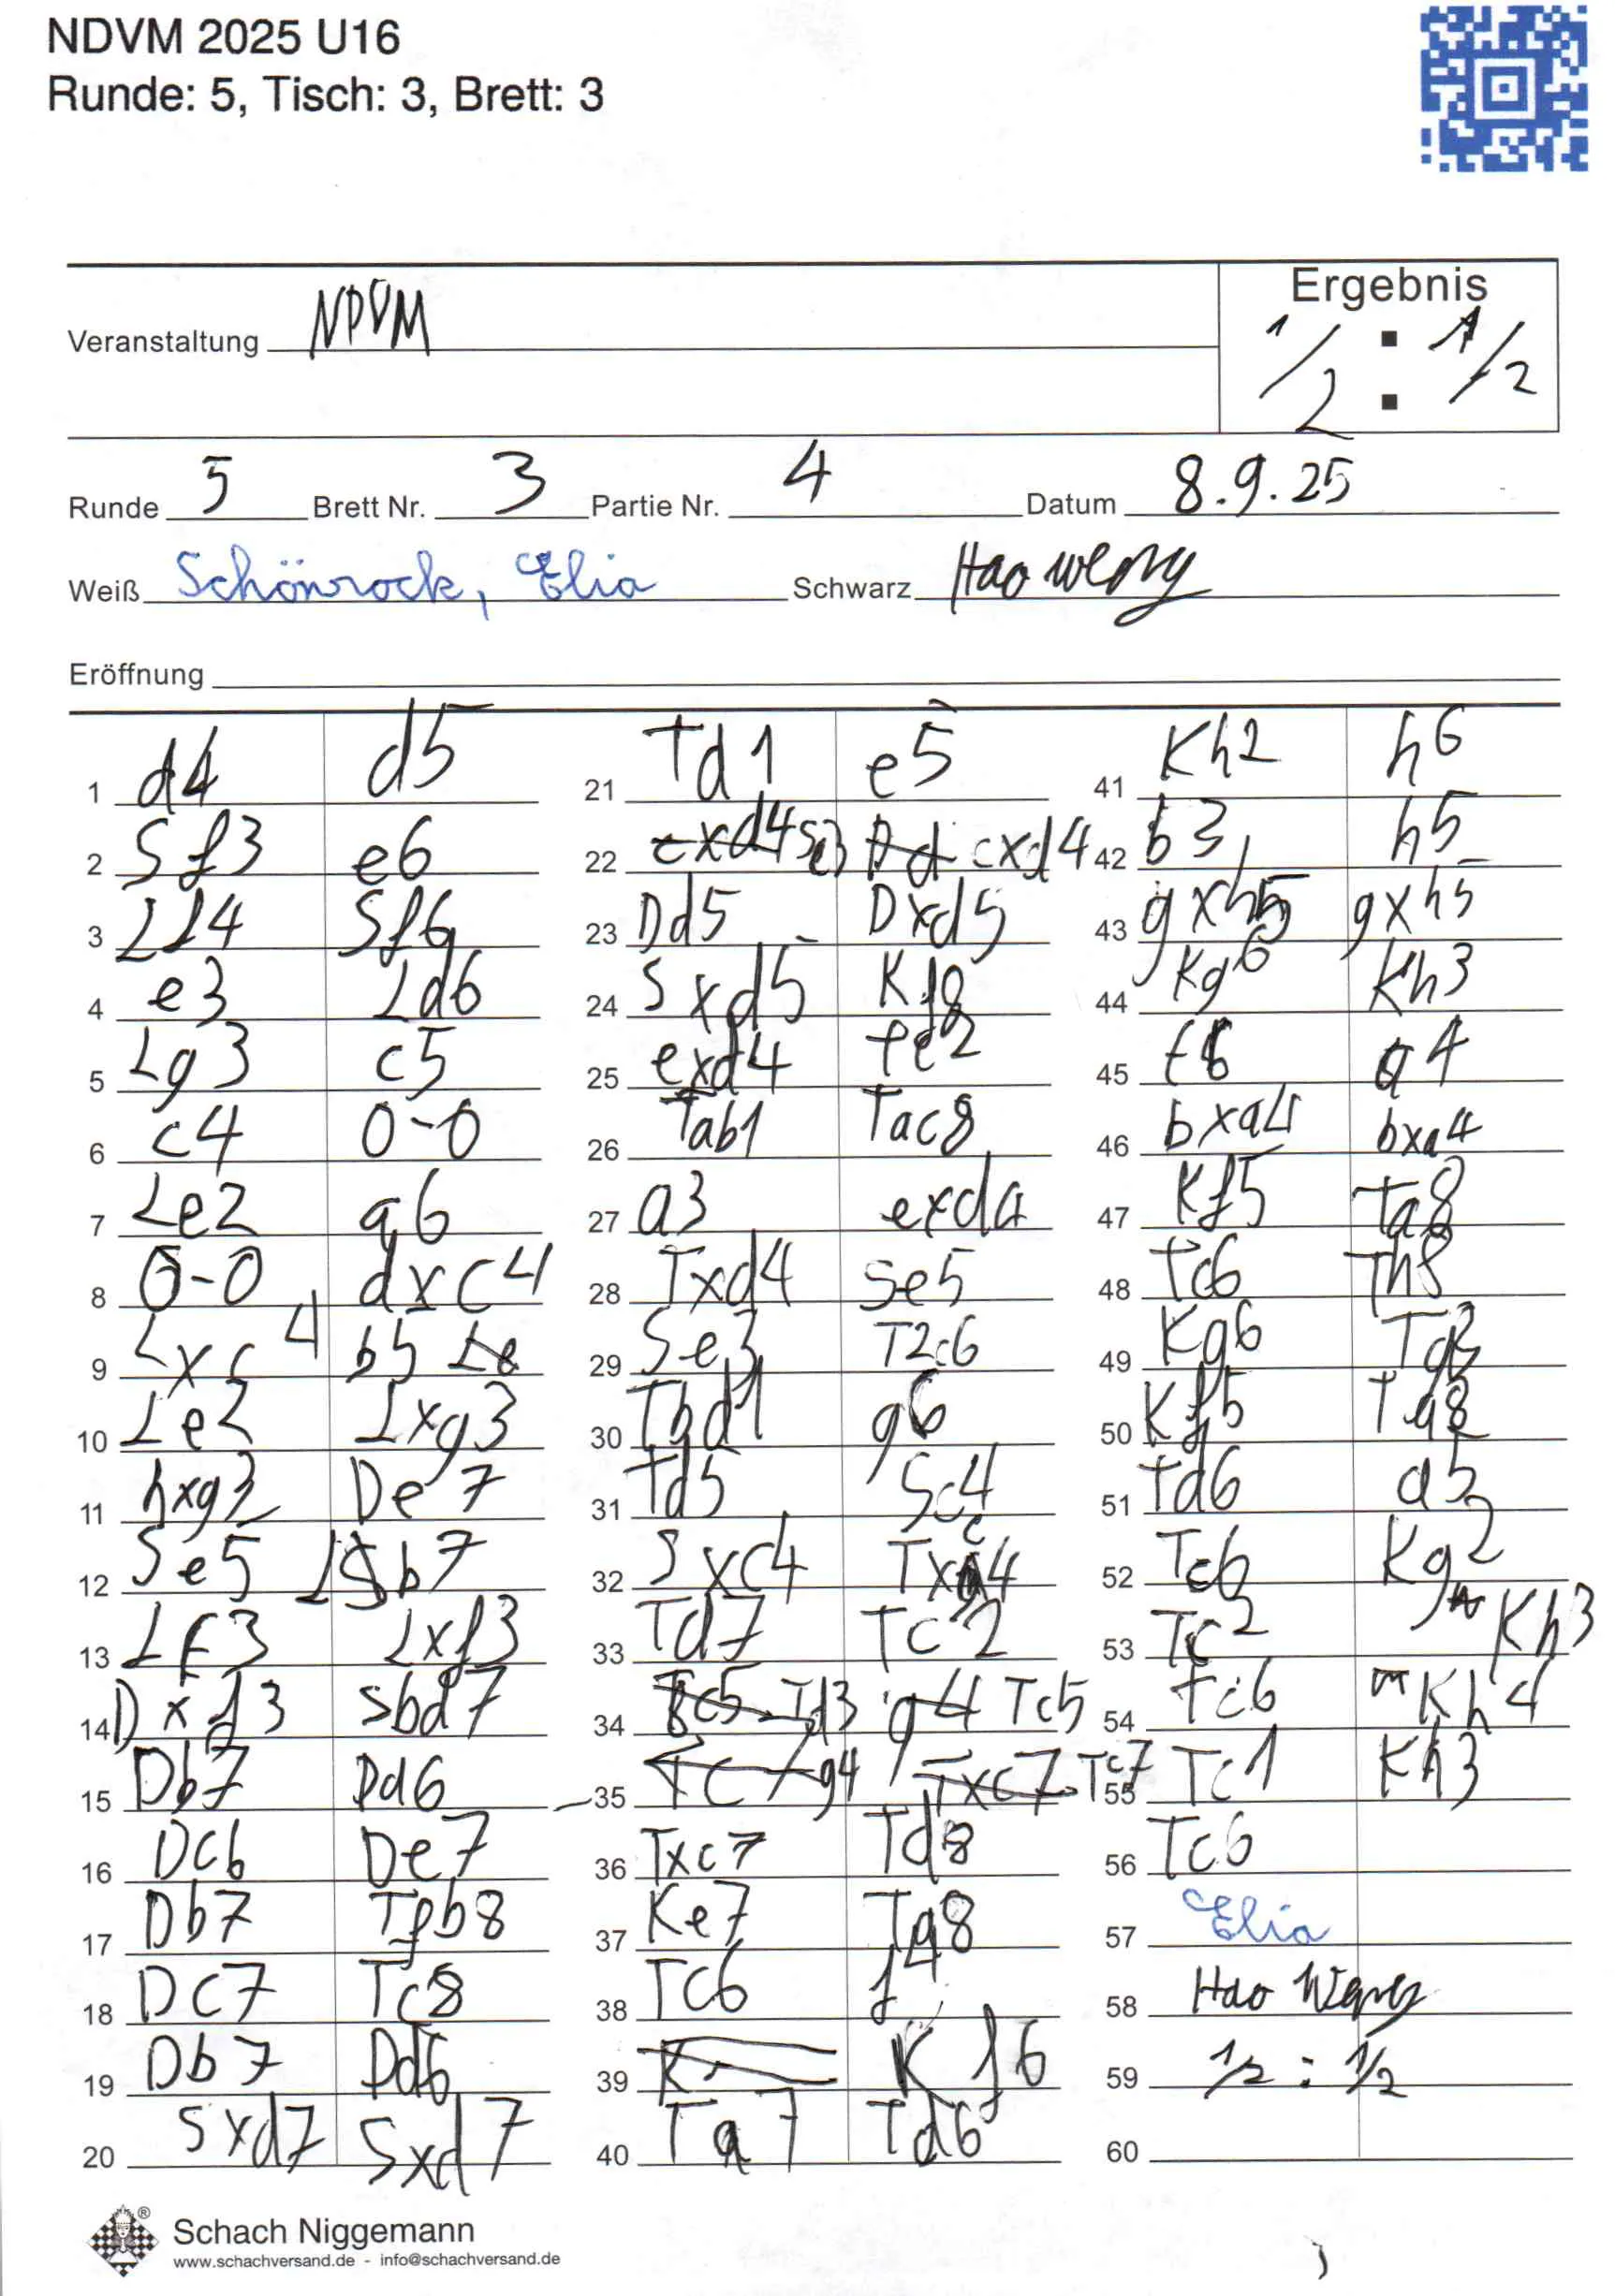 NDVM 2025 U16
Runde: 5, Tisch: 3, Brett: 3
Ergebnis
Veranstaltung NDVM
1/2 : 1/2
Runde 5 Brett Nr. 3 Partie Nr. 4 Datum 8.9.25
Weiß Schönrock, Elia Schwarz Hao Weng
Eröffnung
1 d4 d5
2 Sf3 e6
3 Lf4 Sf6
4 e3 Ld6
5 Lg3 c5
6 c4 0-0
7 Le2 a6
8 0-0 dxc4
9 Lxc4 b5
10 Le2 Lxg3
11 hxg3 De7
12 Se5 Lb7
13 Lf3 Lxf3
14 Dxf3 Sbd7
15 Db7 Dd6
16 Dc6 De7
17 Db7 Tfb8
18 Dc7 Tc8
19 Db7 Dd6
20 Sxd7 Sxd7
21 Td1 e5
22 Sc3 cxd4
23 Dd5 Dxd5
24 Sxd5 Kf8
25 exd4 Te2
26 Tab1 Tac8
27 a3 exd4
28 Txd4 Se5
29 Se3 T2c6
30 Tbd1 g6
31 Td5 Sc4
32 Sxc4 Txc4
33 Td7 Tc2
34 Td3 Tc5
35 g4 Tc7
36 Txc7 Td8
37 Ke7 Tg8
38 Tc6 f4
39 Kf6
40 Ta7 Td6
41 Kh2 h6
42 b3 h5
43 gxh5 gxh5
44 Kg6 Kh3
45 f6 a4
46 bxa4 bxa4
47 Kf5 Ta8
48 Tc6 Th8
49 Kg6 Tg8
50 Kf5 Ta8
51 Td6 a5
52 Tc6 Kg2
53 Tc2 Kh3
54 Tc6 Kh4
55 Tc1 Kh3
56 Tc6
57 Elia
58 Hao Weng
59 1/2 : 1/2
60
Schach Niggemann
www.schachversand.de - info@schachversand.de